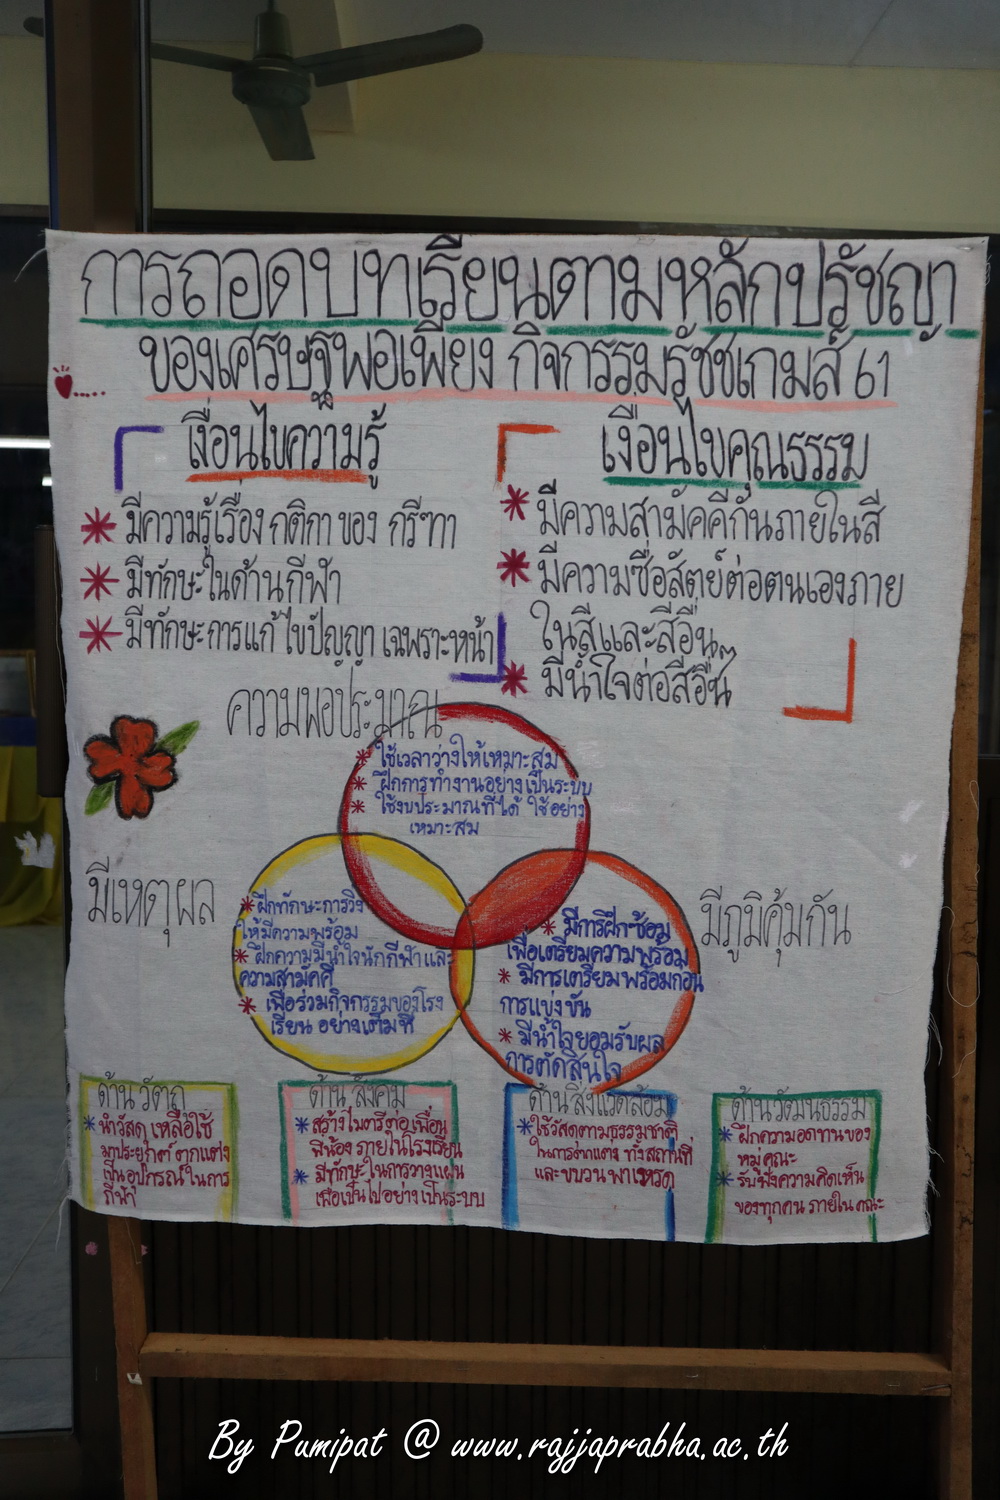 การถอดบทเรียนตามหลักปรัชญา
ของเศรษฐพอเพียง กิจกรรมรัชชเกมส์ 61
เงื่อนไขความรู้
* มีความรู้เรื่อง กติกา ของ กรีฑา
* มีทักษะในด้านกีฬา
* มีทักษะการแก้ไขปัญญา เฉพาะหน้า
เงื่อนไขคุณธรรม
* มีความสามัคคีกันภายในสี
* มีความซื่อสัตย์ต่อตนเองภาย
ในสีและสีอื่นๆ
* มีน้ำใจต่อสีอื่น
ความพอประมาณ
* ใช้เวลาว่างให้เหมาะสม
* ฝึกการทำงานอย่างเป็นระบบ
* ใช้งบประมาณที่ได้ ใช้อย่าง
เหมาะสม
มีเหตุผล
* ฝึกทักษะการวิ่ง
ให้มีความพร้อม
* ฝึกความมีน้ำใจนักกีฬาและ
ความสามัคคี
* เพื่อร่วมกิจกรรมของโรง
เรียน อย่างเต็มที่
มีภูมิคุ้มกัน
* มีการฝึกซ้อม
เพื่อเตรียมความพร้อม
* มีการเตรียมพร้อมก่อน
การแข่งขัน
* มีน้ำใจยอมรับผล
การตัดสินใจ
ด้าน วัตถุ
* นำวัสดุ เหลือใช้
มาประยุกต์ ตกแต่ง
เป็นอุปกรณ์ในการ
กีฬา
ด้าน สังคม
* สร้างไมตรีต่อเพื่อน
พี่น้อง ภายในโรงเรียน
* มีทักษะในการวางแผน
เพื่อเป็นไปอย่างเป็นระบบ
ด้าน สิ่งแวดล้อม
* ใช้วัสดุตามธรรมชาติ
ในการตกแต่ง ทั้งสถานที่
และขบวนพาเหรด
ด้านวัฒนธรรม
* ฝึกความอดทนของ
หมู่คณะ
* รับฟังความคิดเห็น
ของทุกคน ภายใน คณะ
By Pumipat @ www.rajjaprabha.ac.th